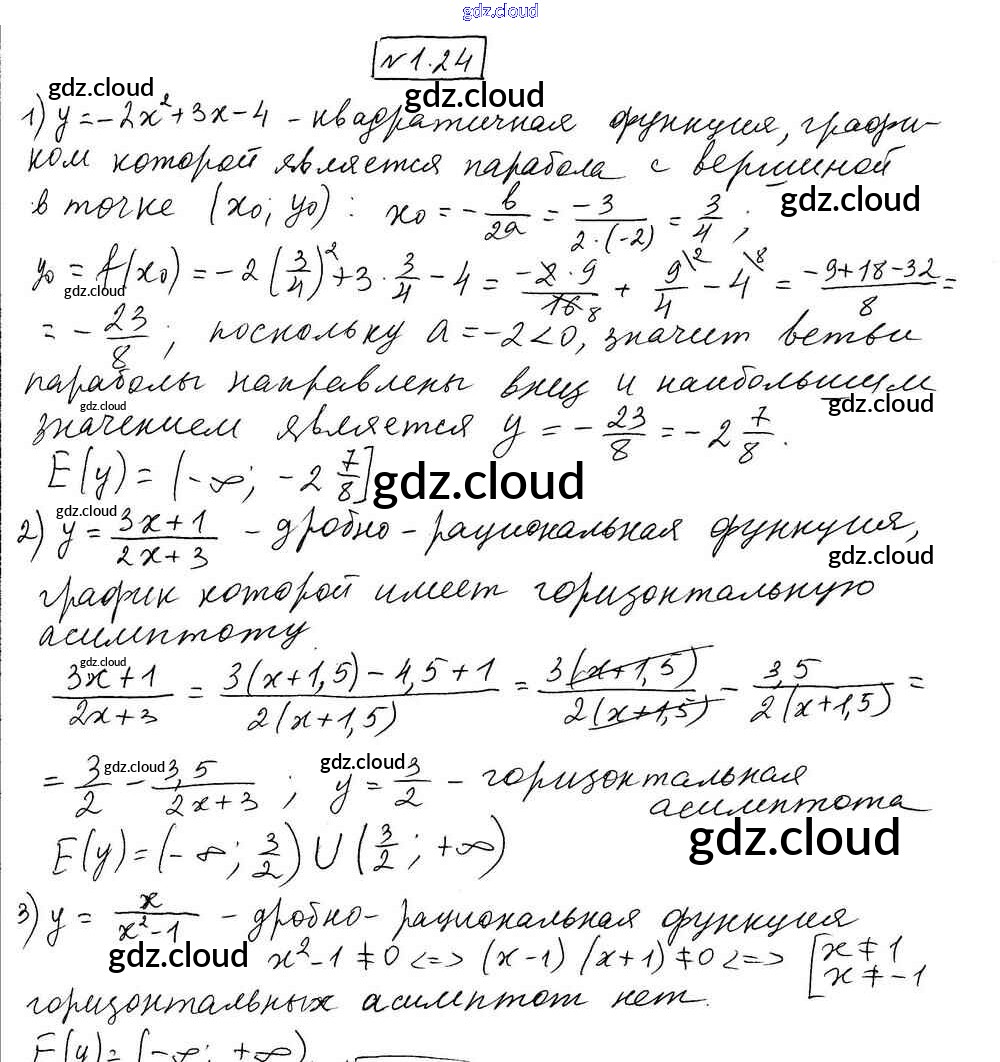 gdz.cloud
N 1.24
gdz.cloud gdz.cloud
1) y = -2x² + 3x - 4 - квадратичная функция, графи-
ком которой является парабола с вершиной
gdz.cloud
в точке (x₀; y₀) : x₀ = -b/2a = -3/(2·(-2)) = 3/4 ;
y₀ = f(x₀) = -2(3/4)² + 3·3/4 - 4 = -2·9/16 8 + 9\2/4 - 4\8 = (-9+18-32)/8 =
gdz.cloud
= -23/8 ; поскольку a = -2 < 0, значит ветви
параболы направлены вниз и наибольшим
gdz.cloud gdz.cloud
значением является y = -23/8 = -2 7/8.
E(y) = (-∞; -2 7/8]
gdz.cloud
gdz.cloud
2) y = (3x+1)/(2x+3) - дробно-рациональная функция,
gdz.cloud
график которой имеет горизонтальную
асимптоту
gdz.cloud
(3x+1)/(2x+3) = (3(x+1,5) - 4,5 + 1)/(2(x+1,5)) = 3(x+1,5)/(2(x+1,5)) - 3,5/(2(x+1,5)) =
gdz.cloud gdz.cloud
= 3/2 - 3,5/(2x+3) ; y = 3/2 - горизонтальная
асимптота
gdz.cloud
E(y) = (-∞; 3/2) ∪ (3/2; +∞)
3) y = x/(x²-1) - дробно-рациональная функция
gdz.cloud
x²-1 ≠ 0 <=> (x-1)(x+1) ≠ 0 <=> [x ≠ 1
x ≠ -1
горизонтальных асимптот нет.
E(y) = (-∞; +∞).